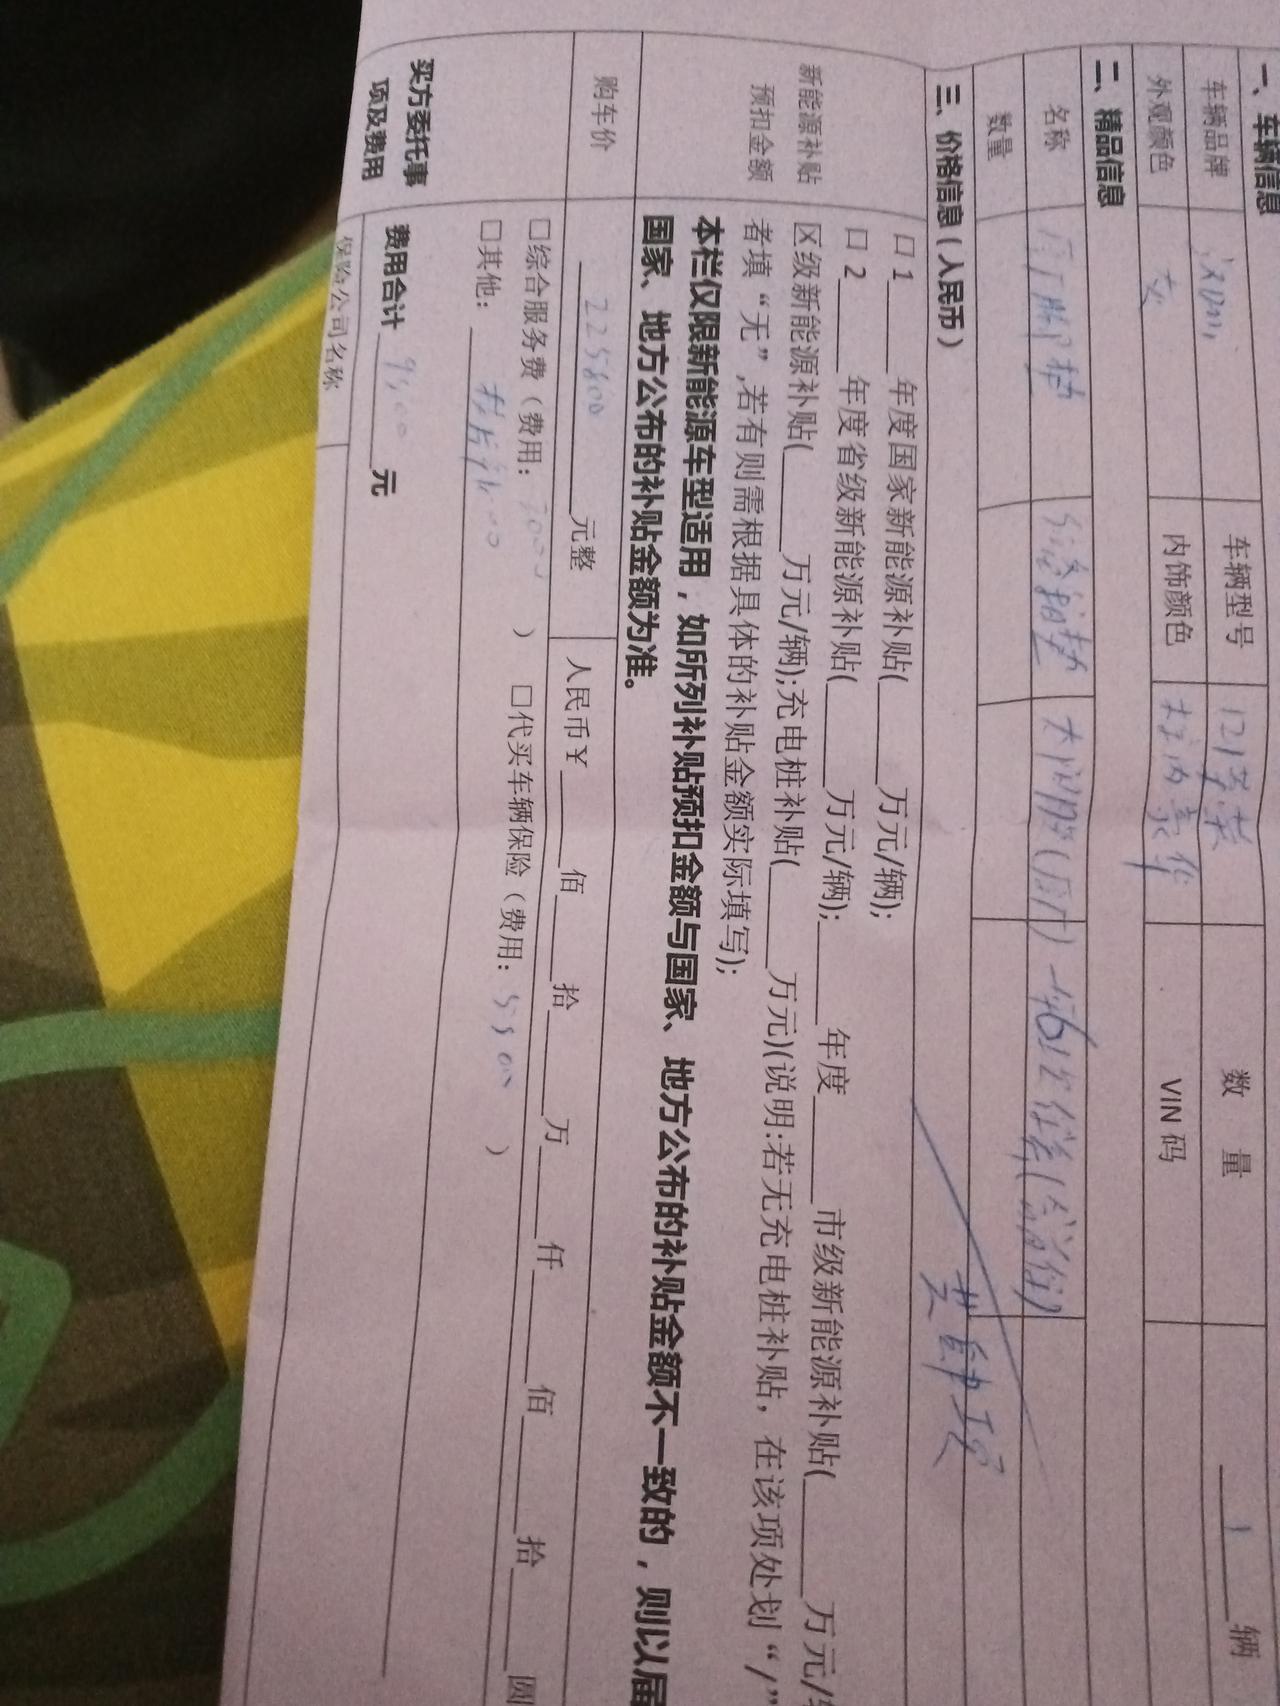 一、车辆信息
车辆品牌 汉DMi 车辆型号 121尊荣 数 量 1 辆
外观颜色 内饰颜色 VIN 码
二、精品信息
名称 脚垫 大 (原厂)
数量
三、价格信息(人民币)
新能源补贴
预扣金额
口1 年度国家新能源补贴( 万元/辆);
口2 年度省级新能源补贴( 万元/辆); 年度 市级新能源补贴( 万元/
区级新能源补贴( 万元/辆);充电桩补贴( 万元)(说明:若无充电桩补贴,在该项处划“/”
者填“无”,若有则需根据具体的补贴金额实际填写);
本栏仅限新能源车型适用,如所列补贴预扣金额与国家、地方公布的补贴金额不一致的,则以届
国家、地方公布的补贴金额为准。
购车价 225800 元整 人民币¥ 佰 拾 万 仟 佰 拾 圆
买方委托事
项及费用
□综合服务费(费用: 2000 ) □代买车辆保险(费用: 5500 )
□其他:
费用合计 元
保险公司名称